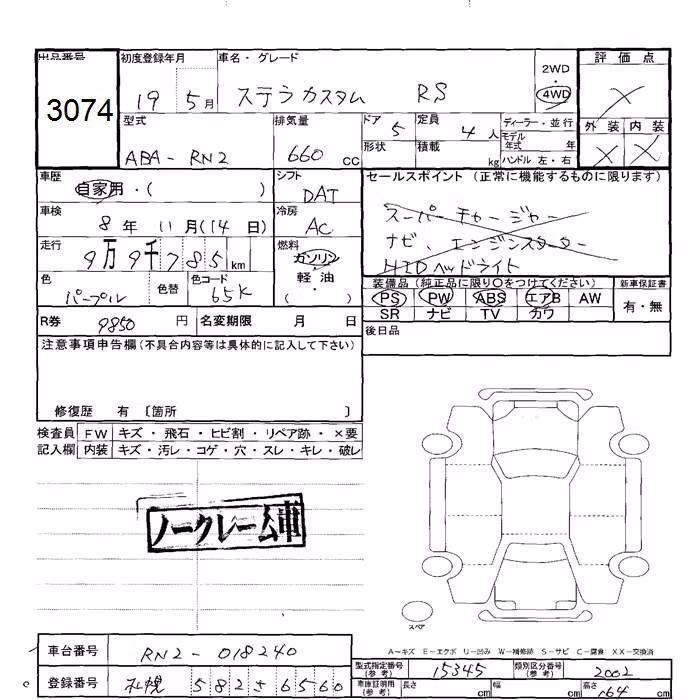 出品番号 初度登録年月 車名・グレード 2WD・4WD 評価点
3074 19 5月 ステラカスタム RS ×
型式 排気量 ドア 5 定員 4人 ディーラー・並行 外装 内装
ABA-RN2 660cc 形状 積載 kg モデル年式 年 × ×
ハンドル 左・右
車歴 シフト セールスポイント (正常に機能するものに限ります)
自家用・( ) DAT
車検 冷房 スーパーチャージャー
8年 11月(14日) AC ナビ、エンジンスターター
走行 燃料 HIDヘッドライト
9万9千785km ガソリン
軽油・
( )
色 色替 色コード 装備品(純正品に限り○をつけてください) 新車保証書
パープル 65K PS PW ABS エアB AW 有・無
SR ナビ TV カワ
R券 9850円 名変期限 月 日 後日品
注意事項申告欄(不具合内容等は具体的に記入して下さい)
修復歴 有 〔箇所 〕
検査員 FW キズ・飛石・ヒビ割・リペア跡・×要
記入欄 内装 キズ・汚レ・コゲ・穴・スレ・キレ・破レ
ノークレーム車
スペア
A-キズ E-エクボ U-凹み W-補修跡 S-サビ C-腐食 XX-交換済
車台番号 RN2-018240 型式指定番号(参考) 15345 類別区分番号(参考) 2002
登録番号 札幌 582 を6560 車庫証明用(参考) 長さ cm 幅 cm 高さ 164cm